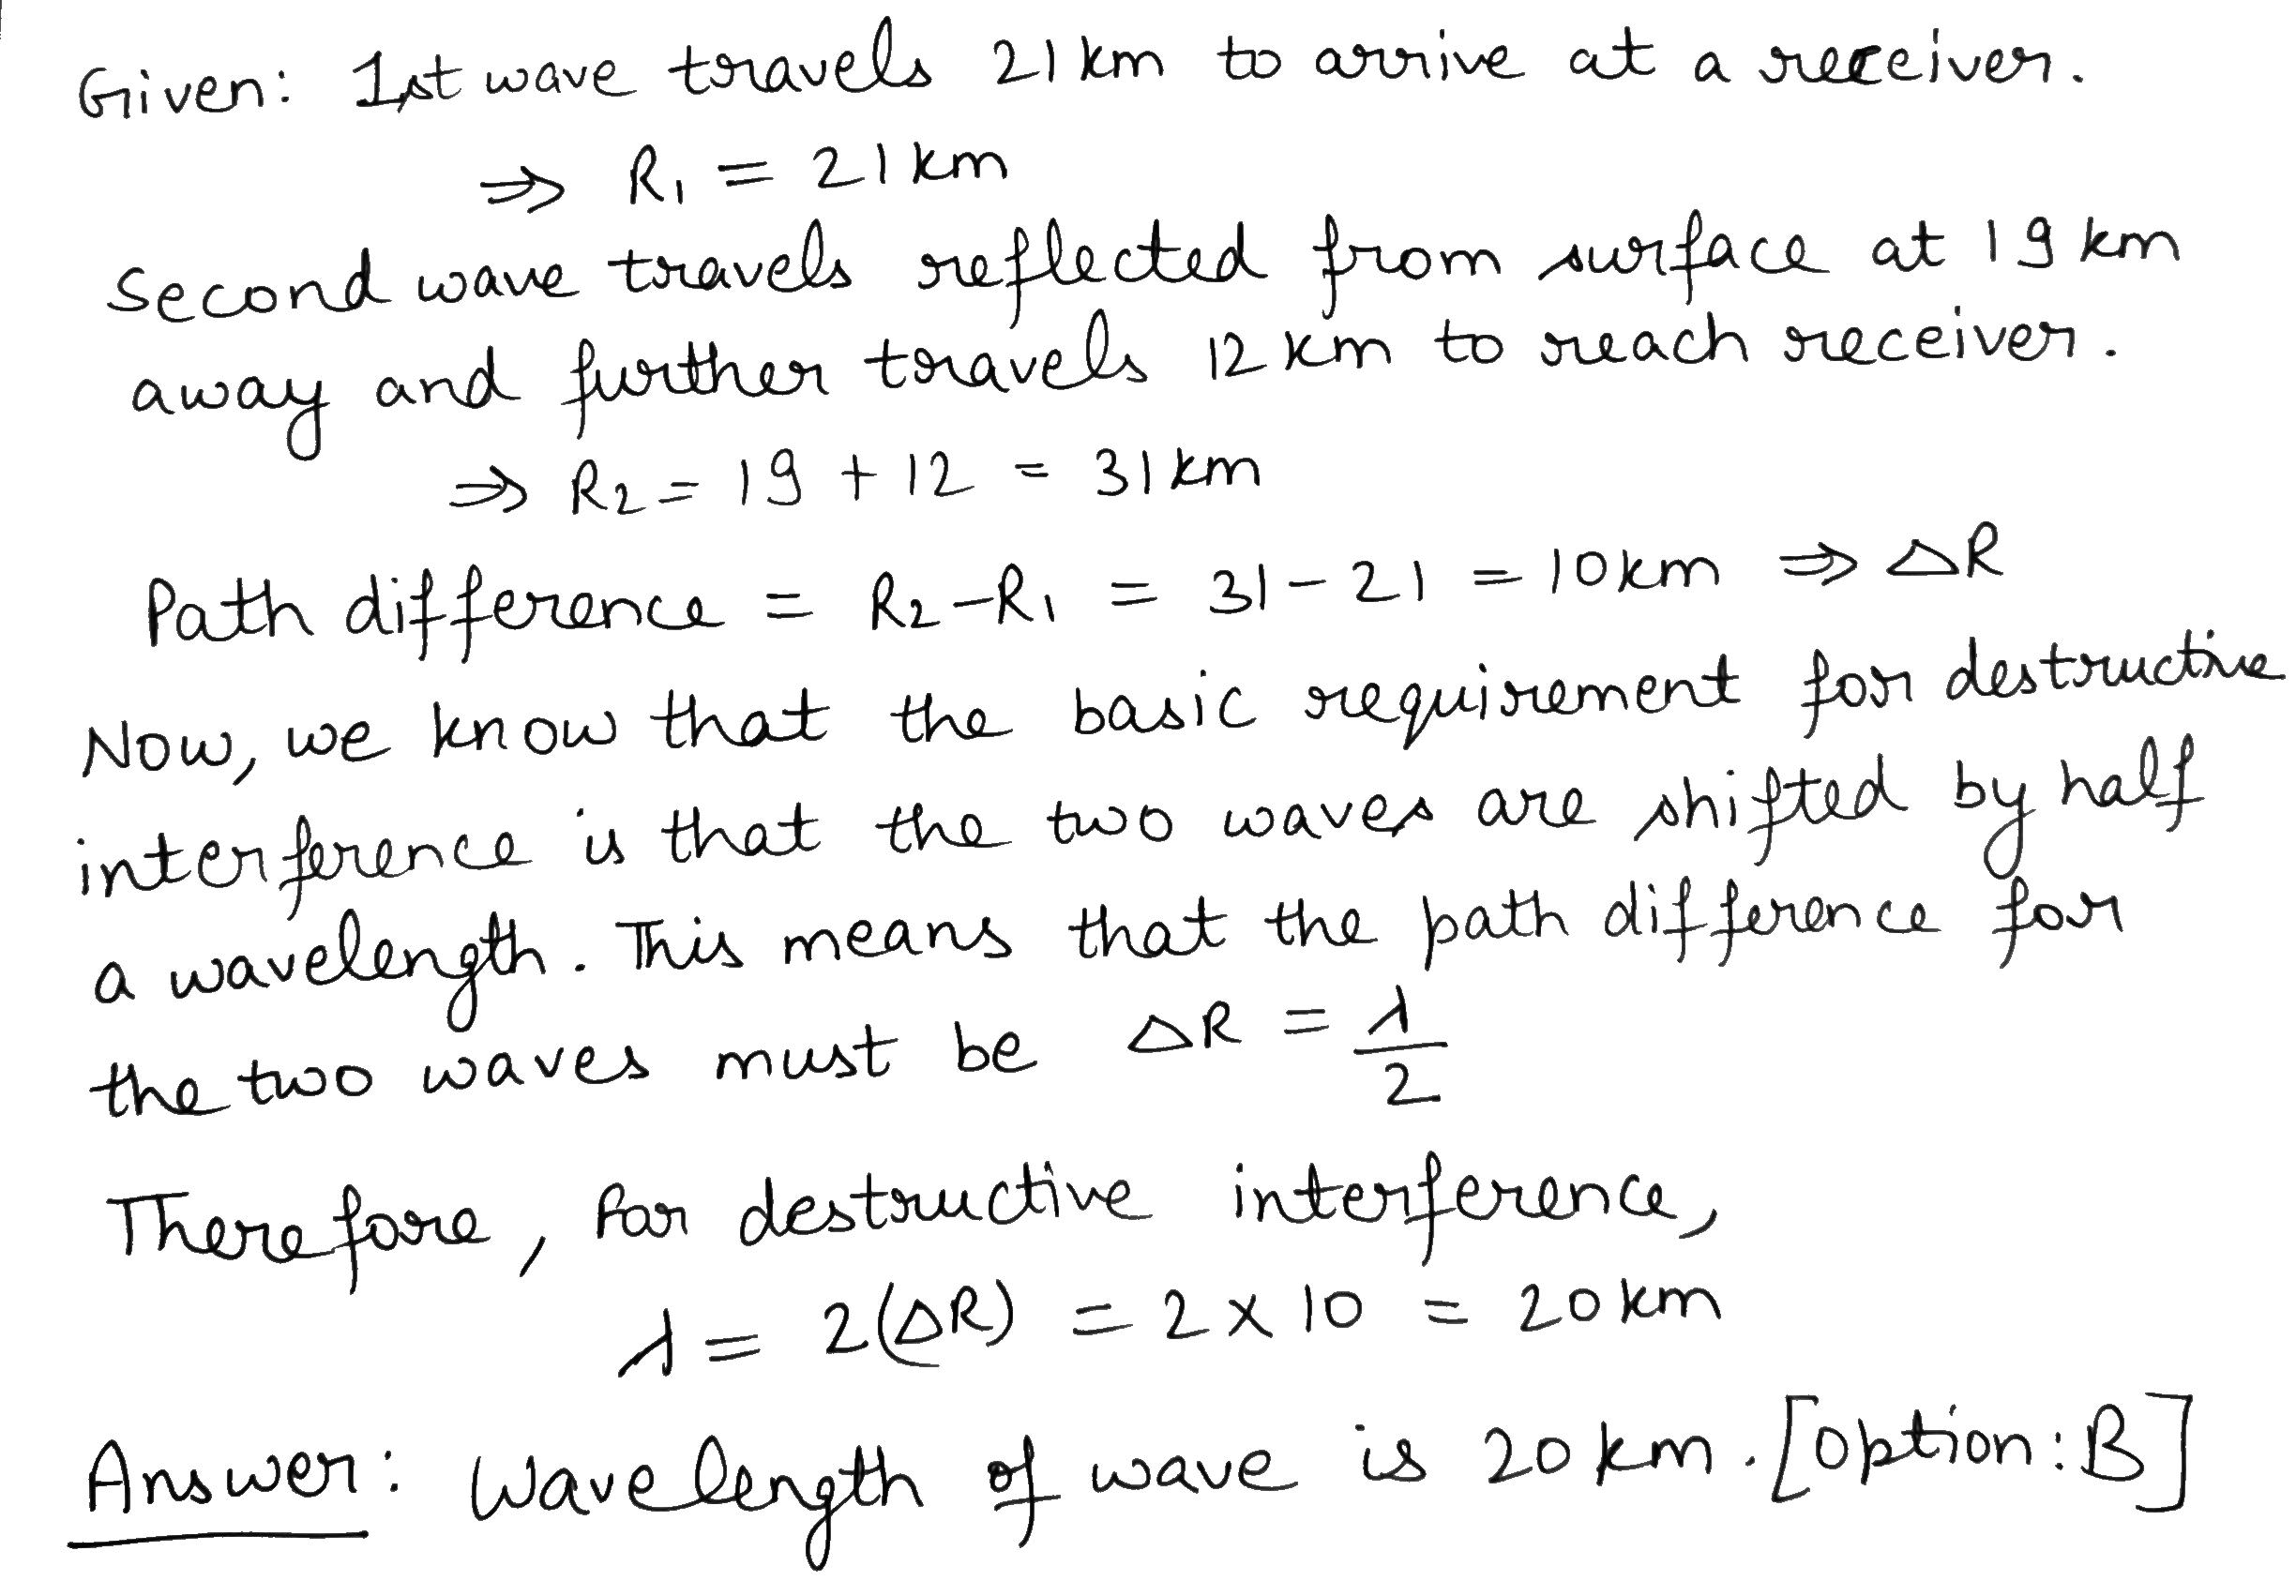 Given: 1st wave travels 21 km to arrive at a receiver.
⇒ R₁ = 21 km
Second wave travels reflected from surface at 19 km
away and further travels 12 km to reach receiver.
⇒ R₂ = 19 + 12 = 31 km
Path difference = R₂ - R₁ = 31 - 21 = 10 km ⇒ △R
Now, we know that the basic requirement for destructive
interference is that the two waves are shifted by half
a wavelength. This means that the path difference for
the two waves must be △R = λ/2
Therefore, for destructive interference,
λ = 2(△R) = 2 x 10 = 20 km
Answer: Wavelength of wave is 20 km. [option: B]